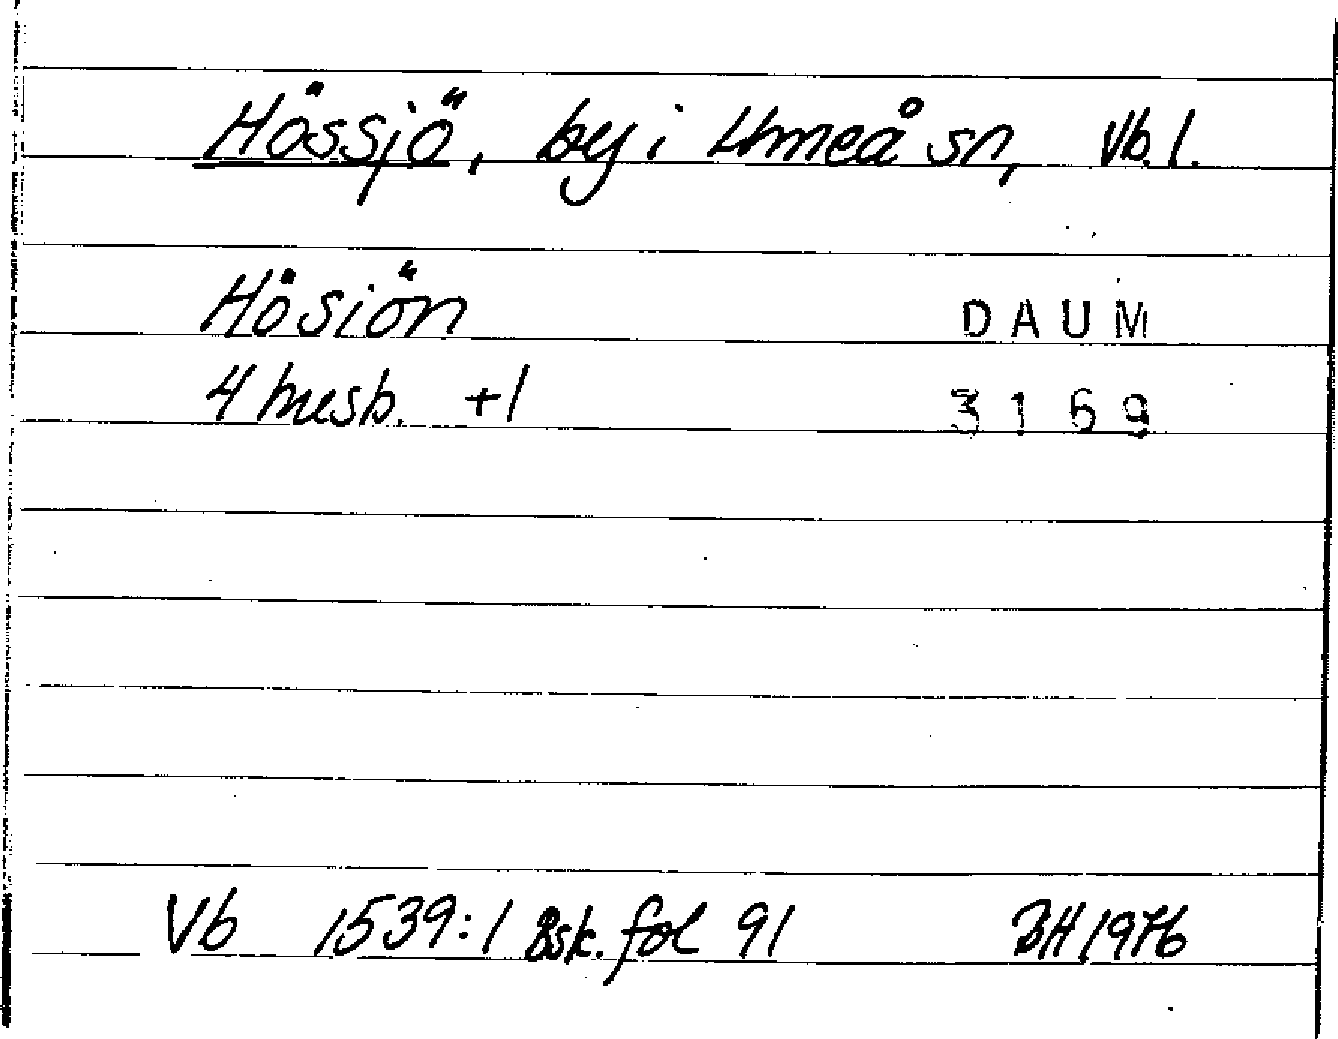 Hössjö, by i Umeå sn, Vb. l.
Hösiön
DAUM
4 mesb. +1
3169
Vb 1539:1 Bsk. fol 91
BH 1976